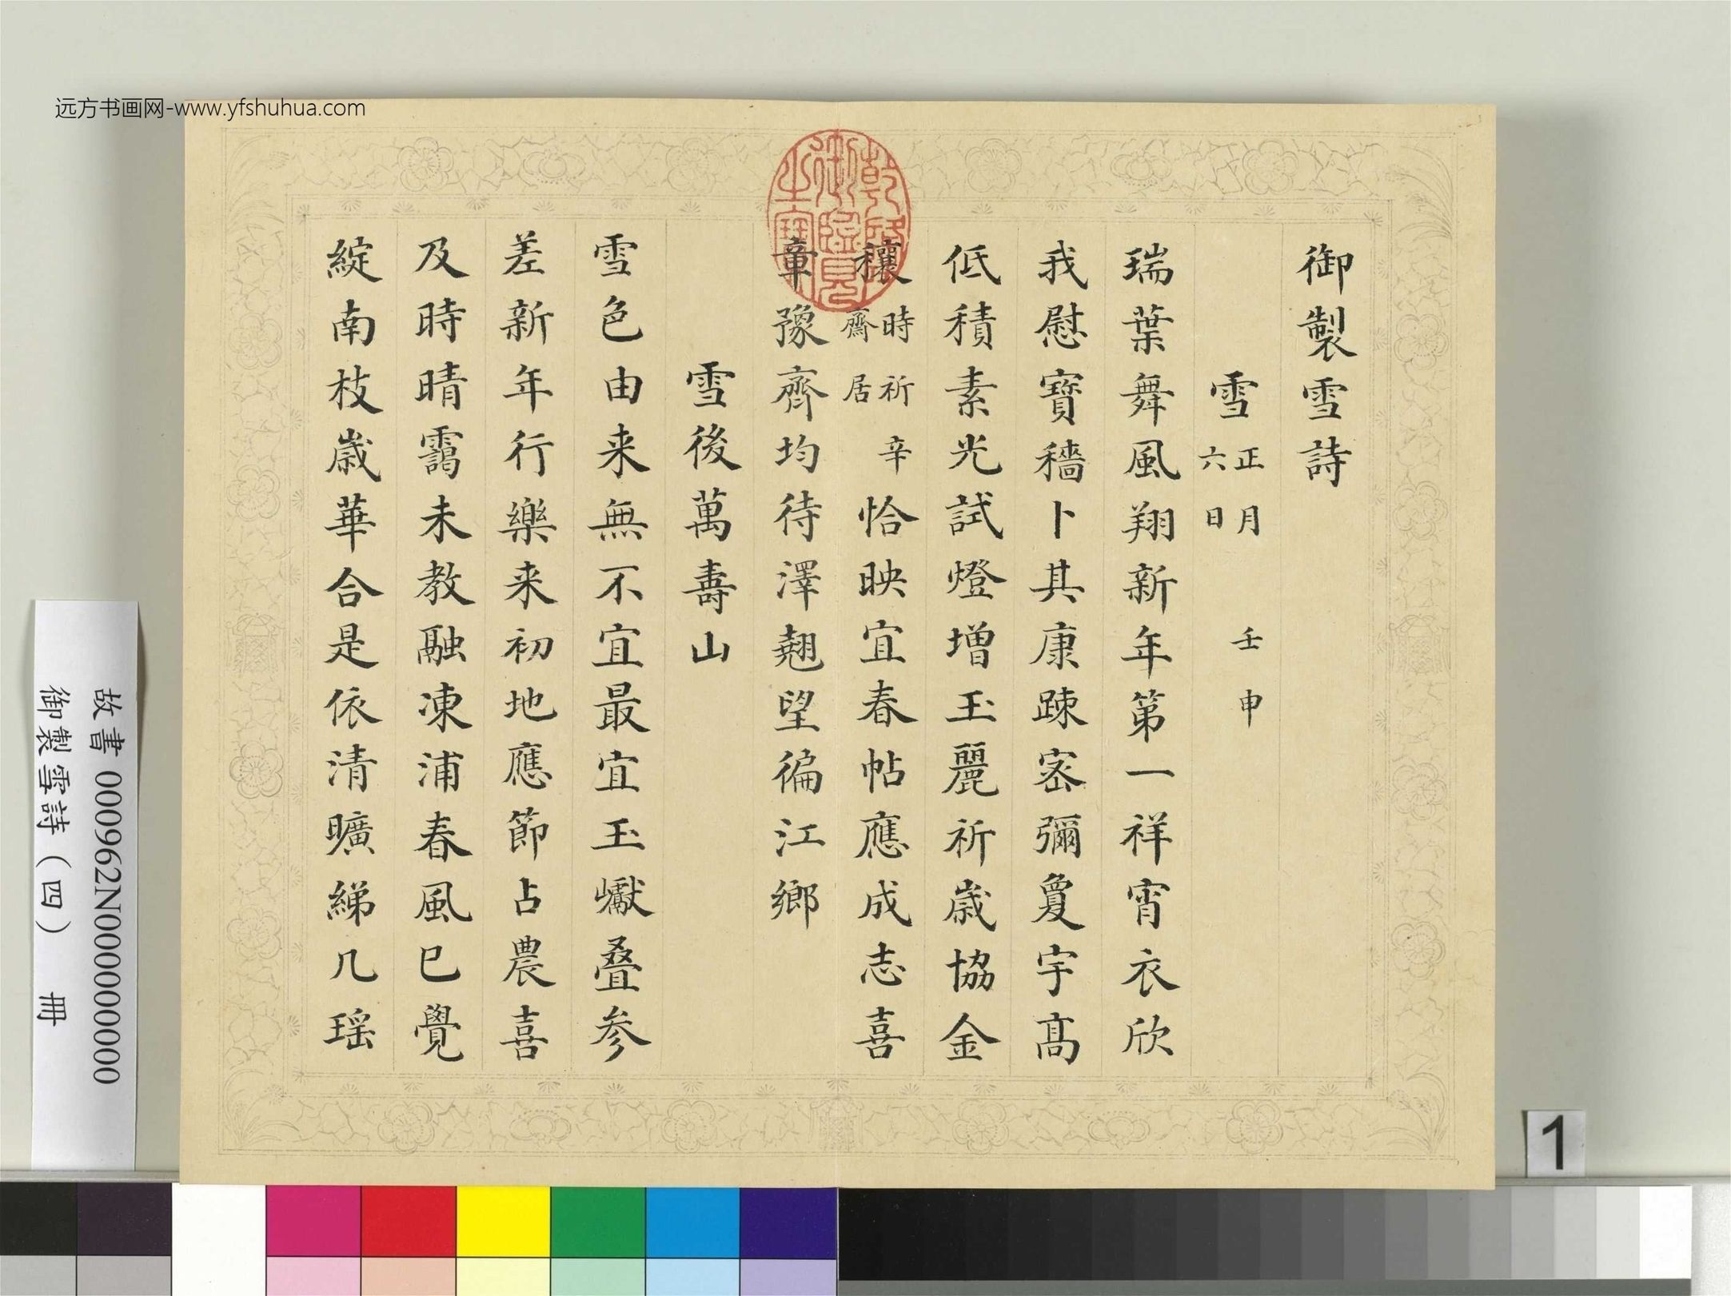 远方书画网-www.yfshuhua.com
御製雪詩
雪 正月六日 壬申
瑞葉舞風翔新年第一祥宵衣欣
我慰寶穡卜其康踈宻彌敻宇髙
低積素光試燈增玉麗祈歲協金
穰 時祈辛齋居 恰映宜春帖應成志喜
章豫齊均待澤翹望徧江鄉
雪後萬壽山
雪色由来無不宜最宜玉巘叠参
差新年行樂来初地應節占農喜
及時晴靄未教融凍浦春風已覺
綻南枝歲華合是依清曠綈几瑶
乾隆御覽之寶
故書 000962N000000000
御製雪詩（四） 冊
1